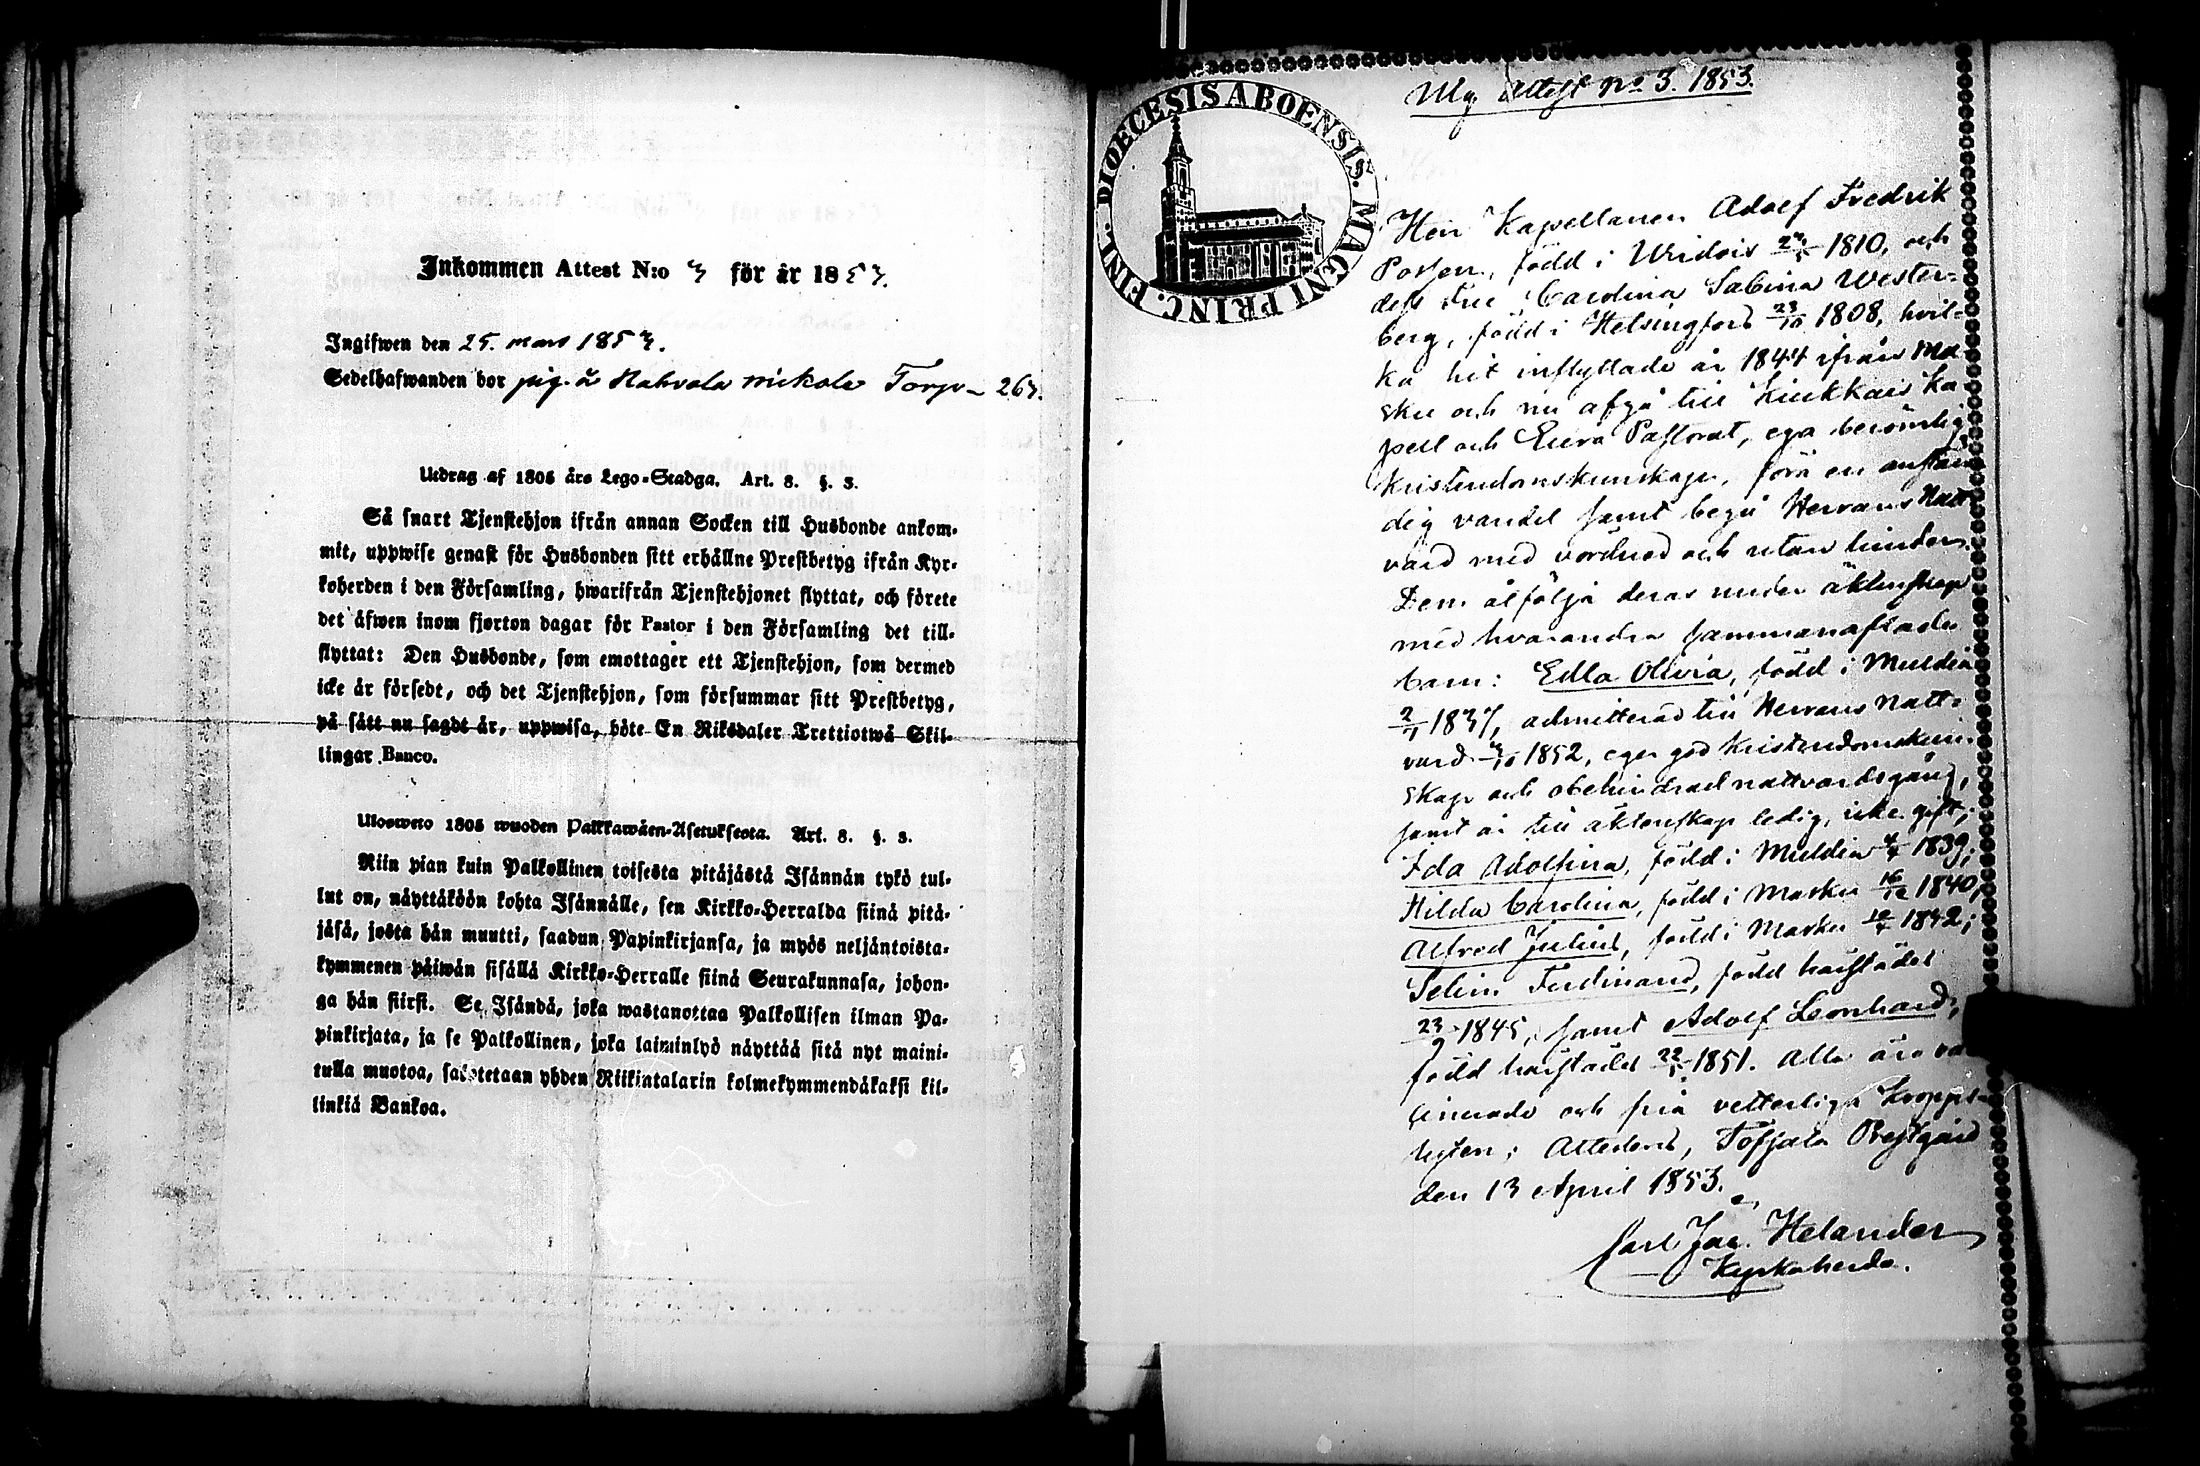 Inkommen Attest N:o 3 för år 1853.
Ingifwen den 25. mars 1853.
Sedelhafwanden bor pig. å Hahvala nickola Torp 263.
Utdrag af 1805 års Lego-Stadga. Art. 8. §. 3.
Så snart Tjenstehjon ifrån annan Socken till Husbonde ankom-
mit, uppwise genast för Husbonden sitt erhållne Prestbetyg ifrån Kyr-
koherden i den Församling, hwarifrån Tjenstehjonet flyttat, och förete
det äfwen inom fjorton dagar för Pastor i den Församling det till-
flyttat: Den Husbonde, som emottager ett Tjenstehjon, som dermed
icke är försedt, och det Tjenstehjon, som försummar sitt Prestbetyg,
på sätt nu sagdt är, uppwisa, böte En Riksdaler Trettiotwå Skil-
lingar Banco.
Ulosweto 1805 wuoden Palkkawäen-Asetuksesta. Art. 8. §. 3.
Niin pian kuin Palkollinen toisesta pitäjästä Isännän tykö tul-
lut on, näyttäköön kohta Isännälle, sen Kirkko-Herralda siinä pitä-
jäsä, josta hän muutti, saadun Papinkirjansa, ja myös neljäntoista-
kymmenen päiwän sisällä Kirkko-Herralle siinä Seurakunnasa, johon-
ga hän siirsi. Se Isändä, joka wastanottaa Palkollisen ilman Pa-
pinkirjata, ja se Palkollinen, joka laiminlyö näyttää sitä nyt maini-
tulla muotoa, sakotetaan yhden Riikintalarin kolmekymmendäkaksi kil-
linkiä Bankoa.
DIOECESIS ABOENSIS. MAGNI PRINC. FINL.
Utg Attest No 3. 1853.
Herr Kapellanen Adolf Fredrik
Possen, född i Virdois 1810, och
dess Fru Carolina Sabina Wester-
berg, född i Helsingfors 23/10 1808, hvil-
ka hit inflyttade år 1844 ifrån Ma
sku och nu afgå till Kiukkais Ka
pell och Eura Pastorat, ega berömlig
kristendomskunskap, föra en anstän
dig vandel samt begå Herrans Natt
vard med vördnad och utan hinder.
Dem åtfölja deras under äktenskap
med hvarandra sammanaflade
barn: Edla Olivia, född i Multia
2/1 1837, admitterad till Herrans natt-
vard 1852, eger god kristendomskun-
skap och obehindrad nattvardsgång,
samt är till äktenskap ledig, icke gift;
Ida Adolfina, född i Multia 1839;
Hilda Carolina, född i Masku 16/12 1840,
Alfred Julius, född i Masku 1842;
Selim Ferdinand, född härstädes
23/9 1845, samt Adolf Leonhard,
född härstädes 22/1 1851. Alla äro va
cinerade och fria vetterliga kropps-
lyten; Attesterar, Töfsala Prestgård
den 13 April 1853.
Carl Jac. Helander
Kyrkoherde.